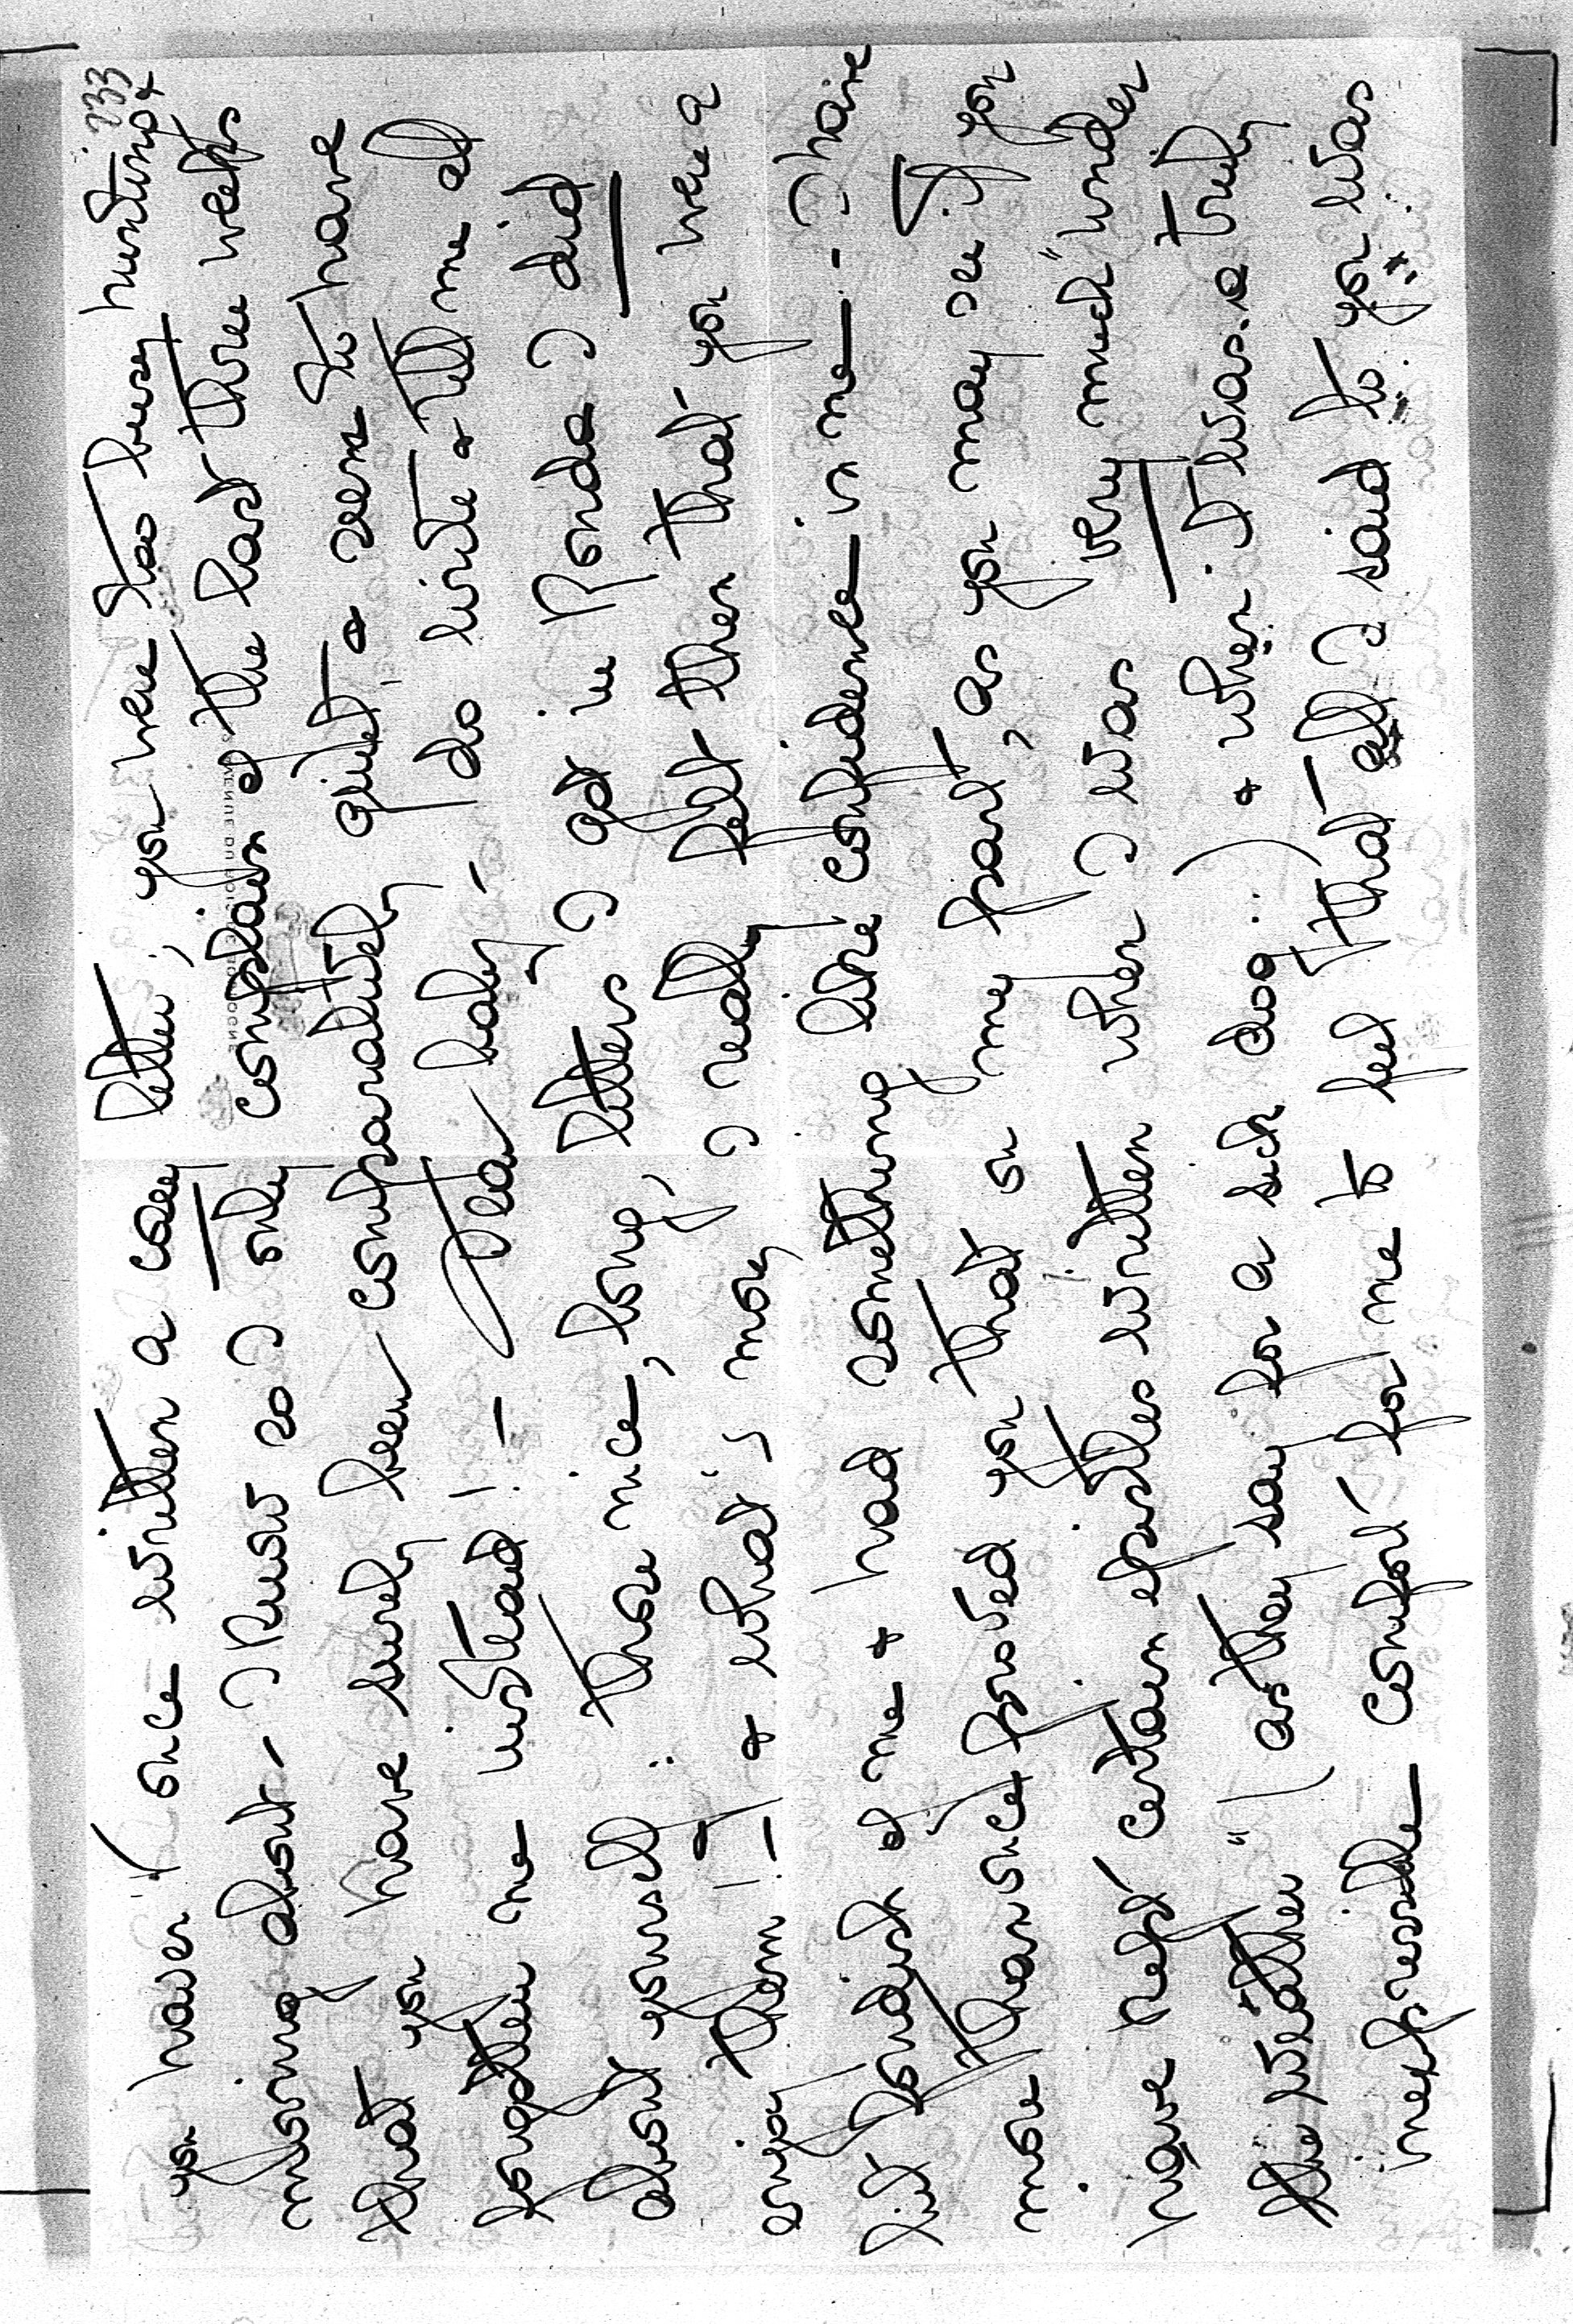 733
you haven't once written a cosy letter, you were too busy hunting &
musing about - I know so I only complain of the last three weeks
that you have surely been comparatively quiet & seem to have
forgotten me instead! - Dear baby, do write & tell me all
about yourself .. those nice, long, letters I got in Ronda I did
enjoy them! - & what's more, I really felt then that you were a
bit fond of me & had something like confidence in me - I have
more than once proved you that on my part, as you may see if you
have kept certain epistles written when I was very much "under
the weather" (as they say for a sick dog..) & when it was a truly
inexpressible comfort for me to feel that all I said to you was
AVENUE DU BOIS DE BOULOGNE